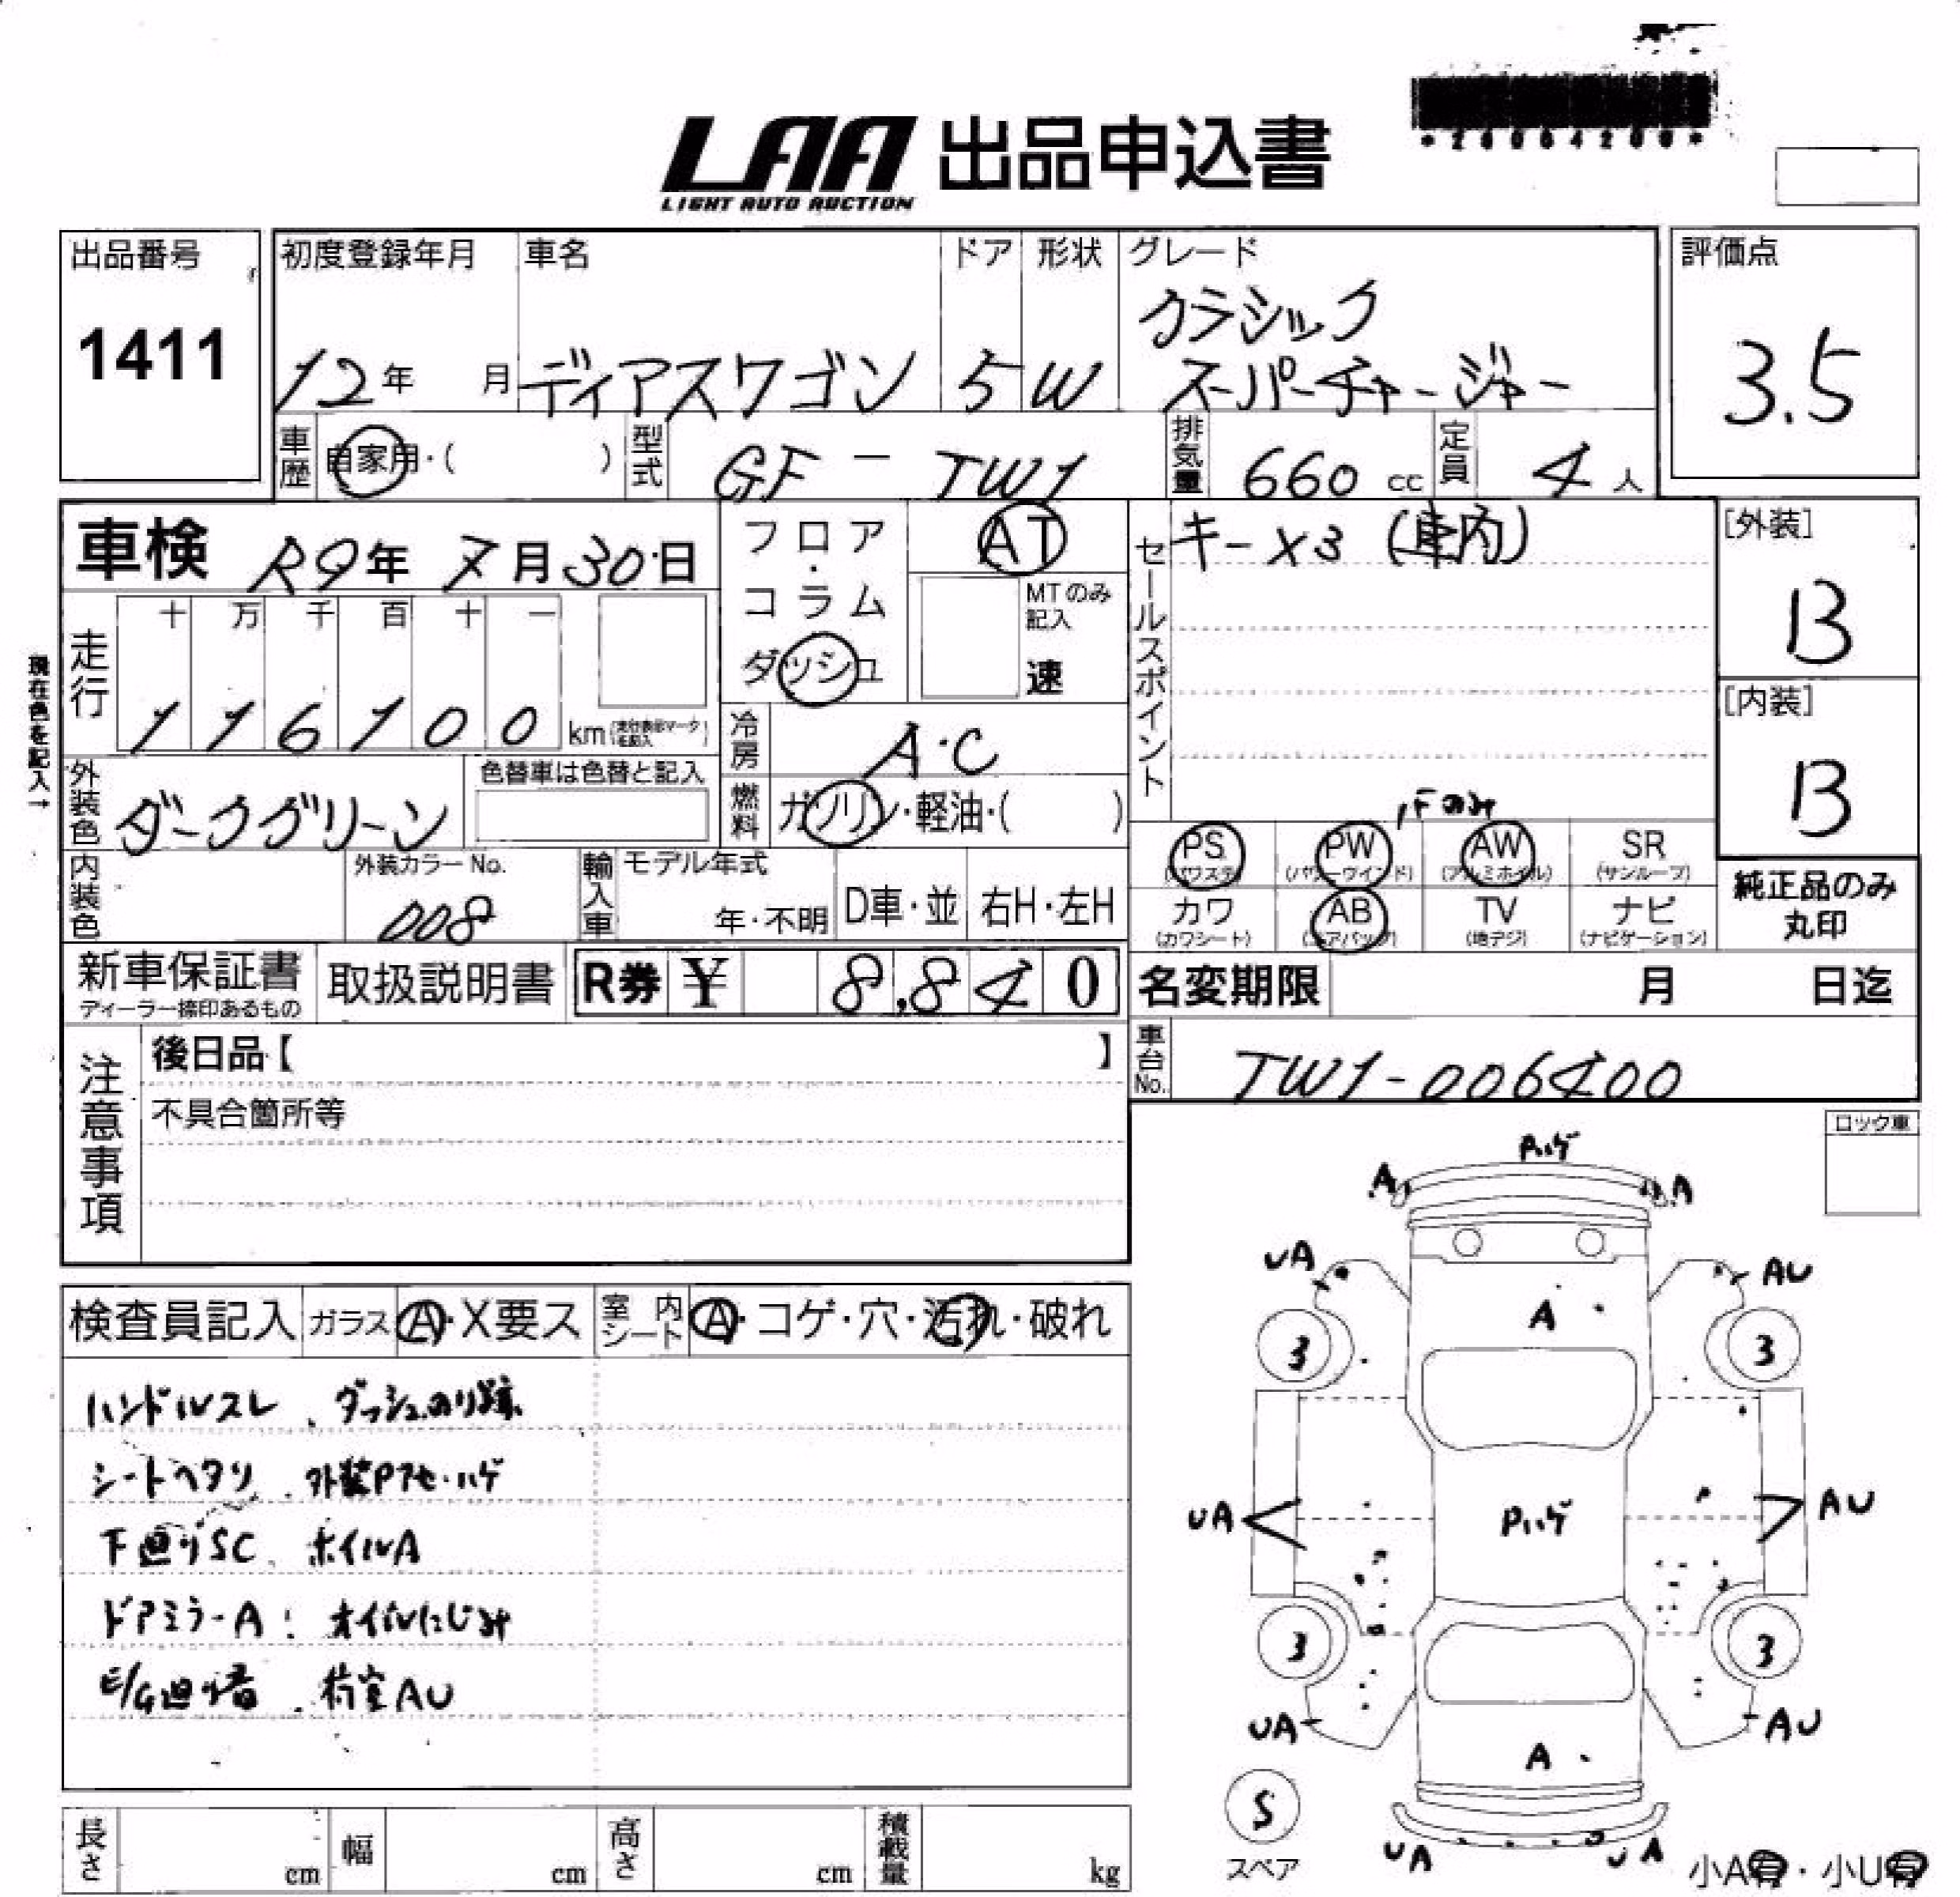 *26064200*
LAA 出品申込書
LIGHT AUTO AUCTION
出品番号
1411
初度登録年月
12年 月
車名
ディアスワゴン
ドア
5
形状
W
グレード
クラシック
スーパーチャージャー
評価点
3.5
車歴 自家用・( )
型式 GF - TW1
排気量 660 cc
定員 4 人
車検 R9年 7月 30日
フロア・コラム
ダッシュ
AT
MTのみ記入
速
セールスポイント
キー×3 (車内)
[外装]
B
[内装]
B
現在色を記入→
走行
十 万 千 百 十 一
1 1 6 1 0 0 km
冷房 A・C
外装色 ダークグリーン
色替車は色替と記入
燃料 ガソリン・軽油・( )
Fのみ
PS (パワステ)
PW (パワーウインド)
AW (アルミホイル)
SR (サンルーフ)
カワ (カワシート)
AB (エアバッグ)
TV (地デジ)
ナビ (ナビゲーション)
純正品のみ
丸印
内装色
外装カラーNo.
008
輸入車
モデル年式
年・不明
D車・並
右H・左H
新車保証書
ディーラー捺印あるもの
取扱説明書
R券 ¥ 8,840
名変期限 月 日迄
車台No. TW1-006400
注意事項
後日品【 】
不具合箇所等
ロック車
検査員記入 ガラス A・X要ス 室内シート A・コゲ・穴・汚れ・破れ
ハンドルスレ、ダッシュのり跡
シートヘタリ、外装Pアセ・ハゲ
下廻りSC、ホイルA
ドアミラーA、オイルにじみ
E/G廻り音、荷室AU
Pハゲ
A A
UA AU
A
3 3
UA Pハゲ AU
3 3
UA AU
A
S
スペア
UA UA
小A有・小U有
長さ cm 幅 cm 高さ cm 積載量 kg